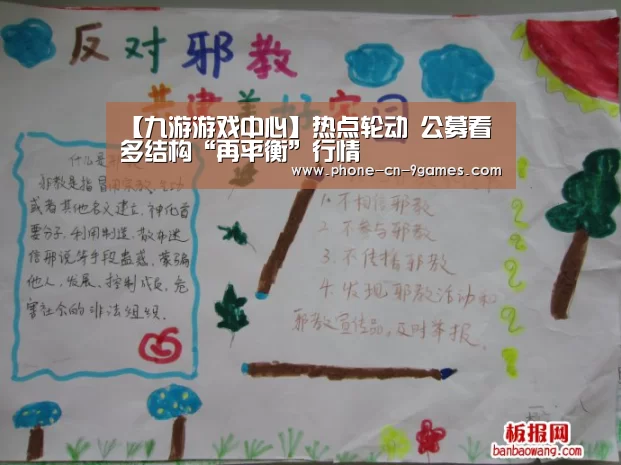 反对邪教
共建美好家园
【九游游戏中心】热点轮动 公募看
多结构“再平衡”行情
www.phone-cn-9games.com
什么是
邪教是指冒用宗教、气功
或者其他名义建立,神化首
要分子,利用制造、散布迷
信邪说等手段蛊惑、蒙骗
他人,发展、控制成员,危
害社会的非法组织。
1. 不相信邪教
2. 不参与邪教
3. 不传播邪教
4. 发现邪教活动和
邪教宣传品,及时举报。
板报网
banbaowang.com